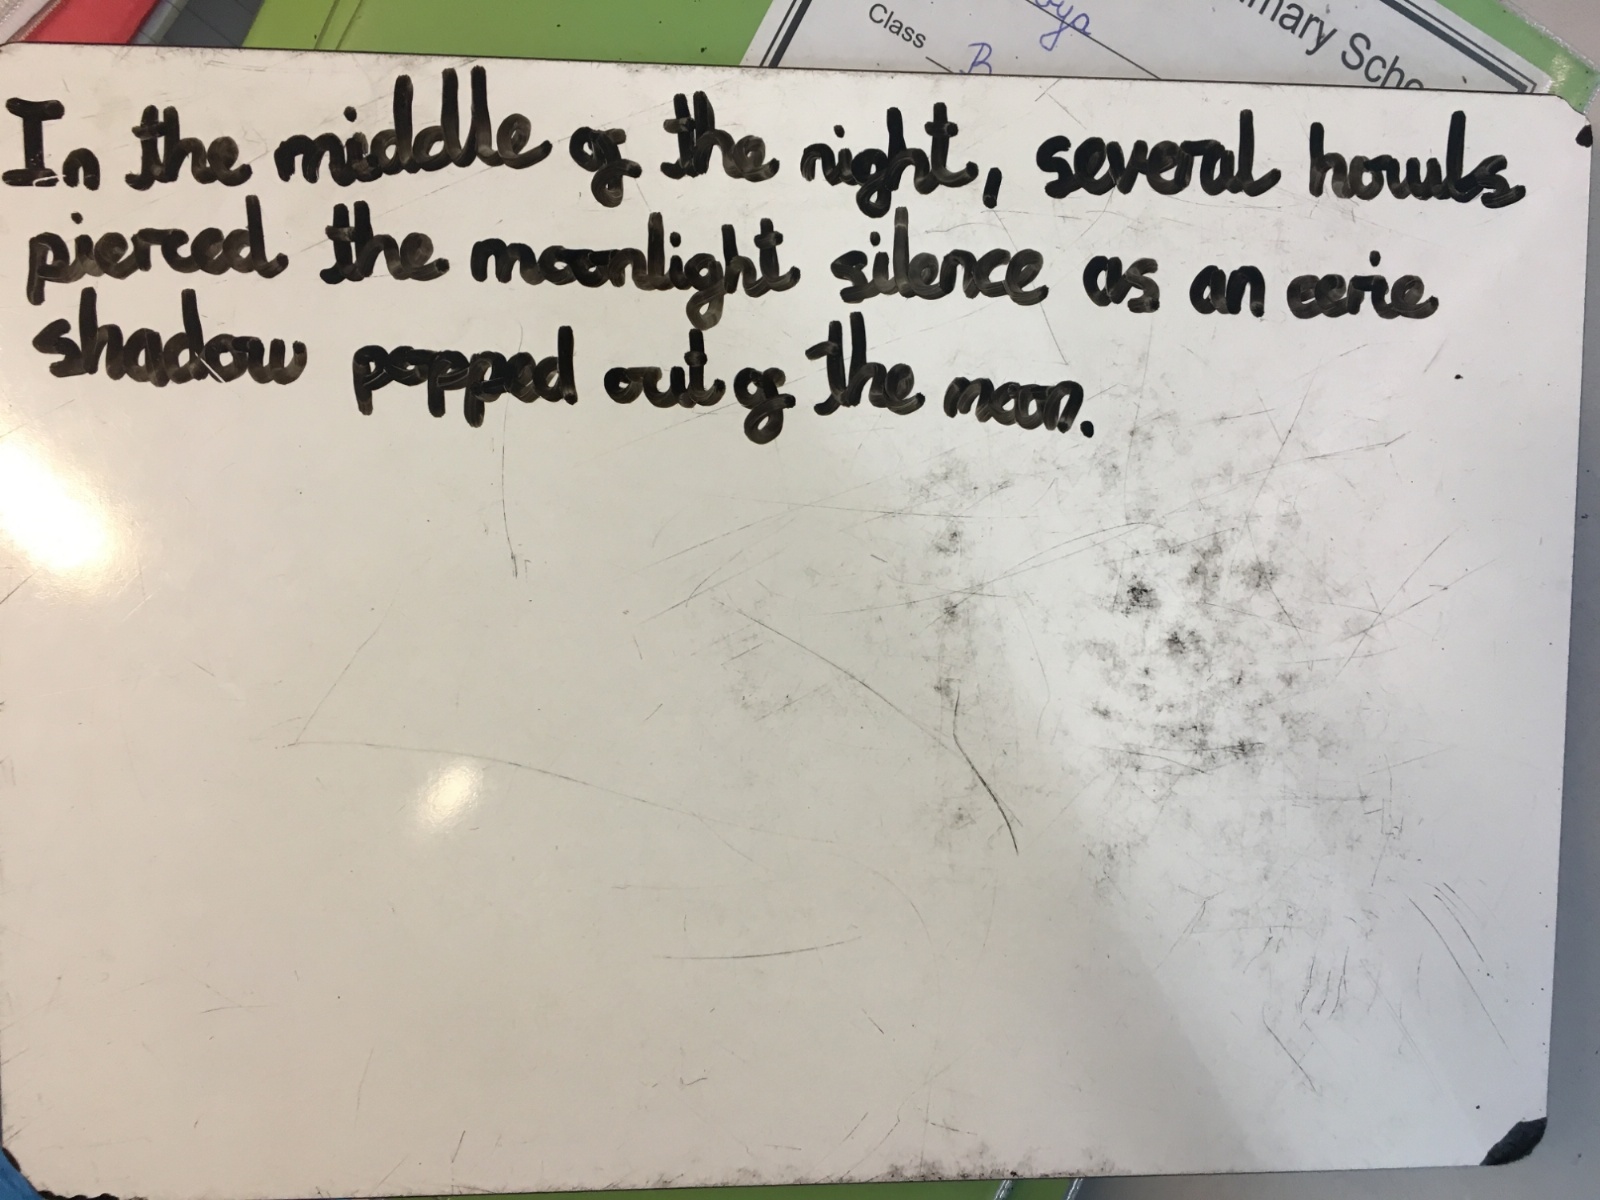 Class B
In the middle of the night, several howls
pierced the moonlight silence as an eerie
shadow popped out of the moon.